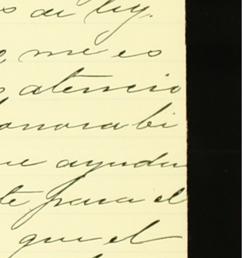 s de ley.
, me es
s atencio
onorabi
ue ayudar
te para el
que el